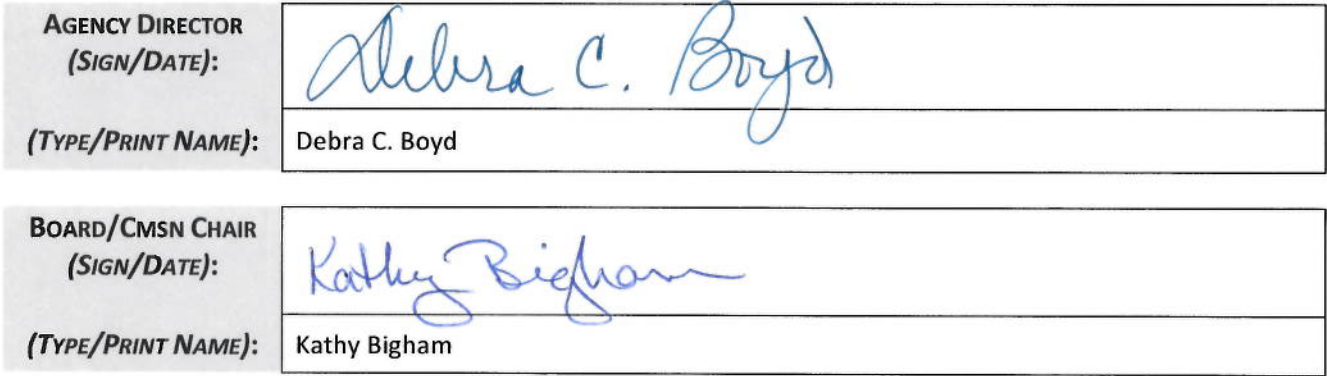 AGENCY DIRECTOR
(SIGN/DATE):
Debra C. Boyd
(TYPE/PRINT NAME):
Debra C. Boyd
BOARD/CMSN CHAIR
(SIGN/DATE):
Kathy Bigham
(TYPE/PRINT NAME):
Kathy Bigham